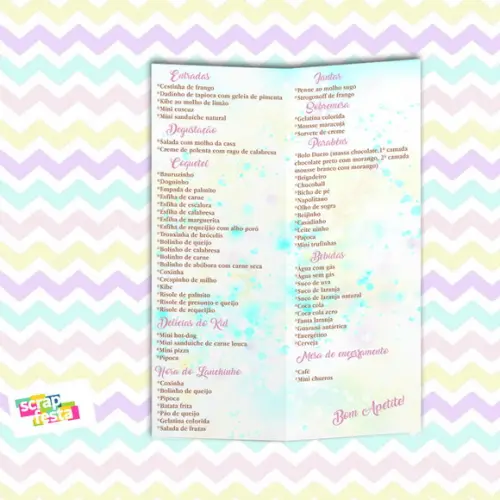 Entradas
*Cestinha de frango
*Dadinho de tapioca com geleia de pimenta
*Kibe ao molho de limão
*Mini cuscuz
*Mini sanduiche natural
Degustação
*Salada com molho da casa
*Creme de polenta com ragu de calabresa
Coquetel
*Bauruzinho
*Doguinho
*Empada de palmito
*Esfiha de carne
*Esfiha de escarola
*Esfiha de calabresa
*Esfiha de marguerita
*Esfiha de requeijão com alho poró
*Trouxinha de brócolis
*Bolinho de queijo
*Bolinho de calabresa
*Bolinho de carne
*Bolinho de abóbora com carne seca
*Coxinha
*Crespinho de milho
*Kibe
*Risole de palmito
*Risole de presunto e queijo
*Risole de requeijão
Delícias do Kid
*Mini hot-dog
*Mini sanduiche de carne louca
*Mini pizza
*Pipoca
Hora do Lanchinho
*Coxinha
*Bolinho de queijo
*Pipoca
*Batata frita
*Pão de queijo
*Gelatina colorida
*Salada de frutas
Jantar
*Penne ao molho sugo
*Strogonoff de frango
Sobremesa
*Gelatina colorida
*Mousse maracujá
*Sorvete de creme
Parabéns
*Bolo Duem (massa chocolate,1ª camada
chocolate preto com morango, 2ª camada
mousse branco com morango)
*Brigadeiro
*Chocoball
*Bicho de pé
*Napolitano
*Olho de sogra
*Beijinho
*Casadinho
*Leite ninho
*Paçoca
*Mini trufinhas
Bebidas
*Água com gás
*Água sem gás
*Suco de uva
*Suco de laranja
*Suco de laranja natural
*Coca cola
*Coca cola zero
*Fanta laranja
*Guaraná antártica
*Energético
*Cerveja
Mesa de encerramento
*Café
*Mini churros
Bom Apetite!
scrap
festa